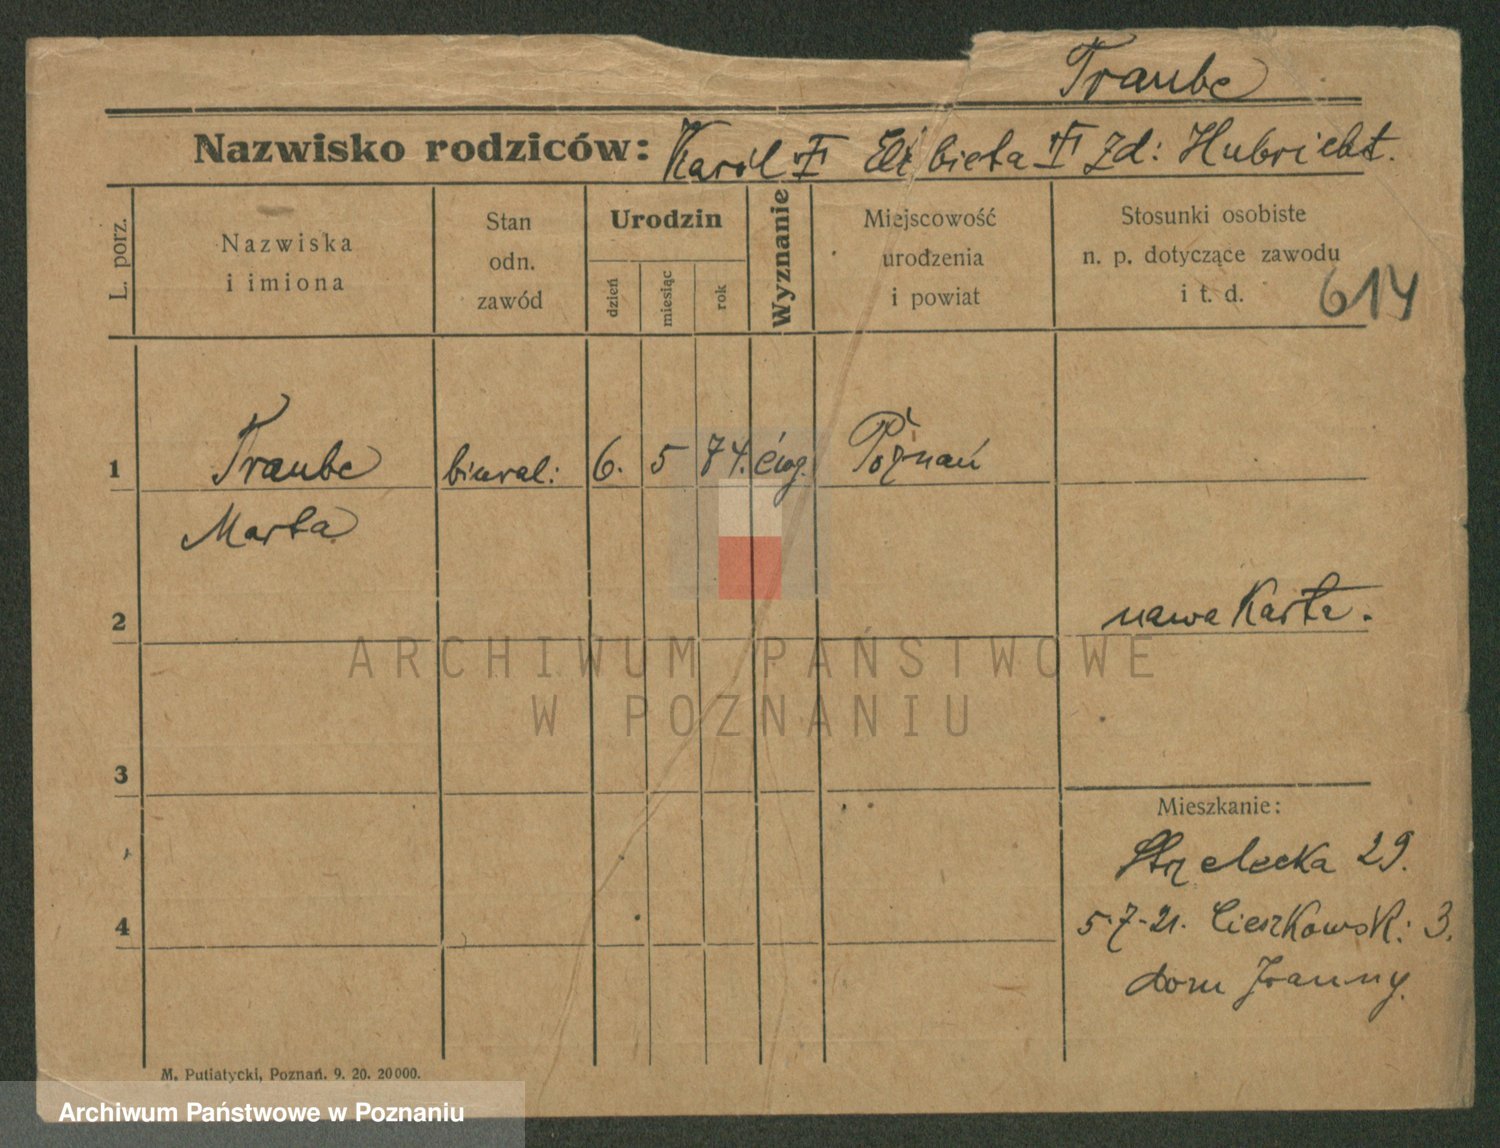 Traube
Nazwisko rodziców: Karól Elżbieta zd: Hubricht.
L. porz.
Nazwiska
i imiona
Stan
odn.
zawód
Urodzin
dzień
miesiąc
rok
Wyznanie
Miejscowość
urodzenia
i powiat
Stosunki osobiste
n. p. dotyczące zawodu
i t. d.
614
1 Traube biural: 6. 5 74. ewg. Poznań
Marta
2 nowa Karta.
ARCHIWUM PAŃSTWOWE
W POZNANIU
3
Mieszkanie:
Strzelecka 29.
4 5-7-21. Cieszkowsk: 3.
dom
M. Putiatycki, Poznań. 9. 20. 20000.
Archiwum Państwowe w Poznaniu